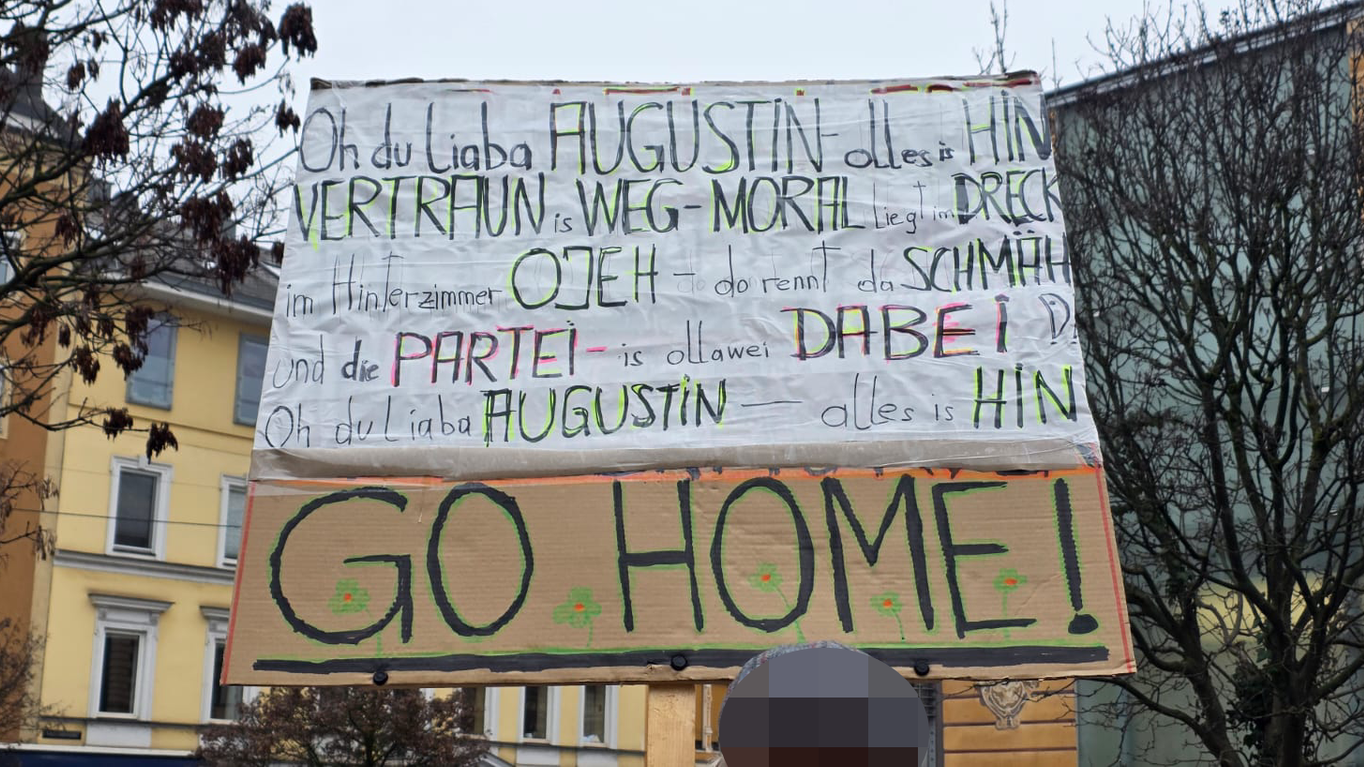 Oh du Liaba AUGUSTIN - olles is HIN
VERTRAUN is WEG - MORAL liegt im DRECK
im Hinterzimmer OJEH - do rennt da SCHMÄH
und die PARTEI - is ollawei DABEI
Oh du Liaba AUGUSTIN — alles is HIN
GO HOME!